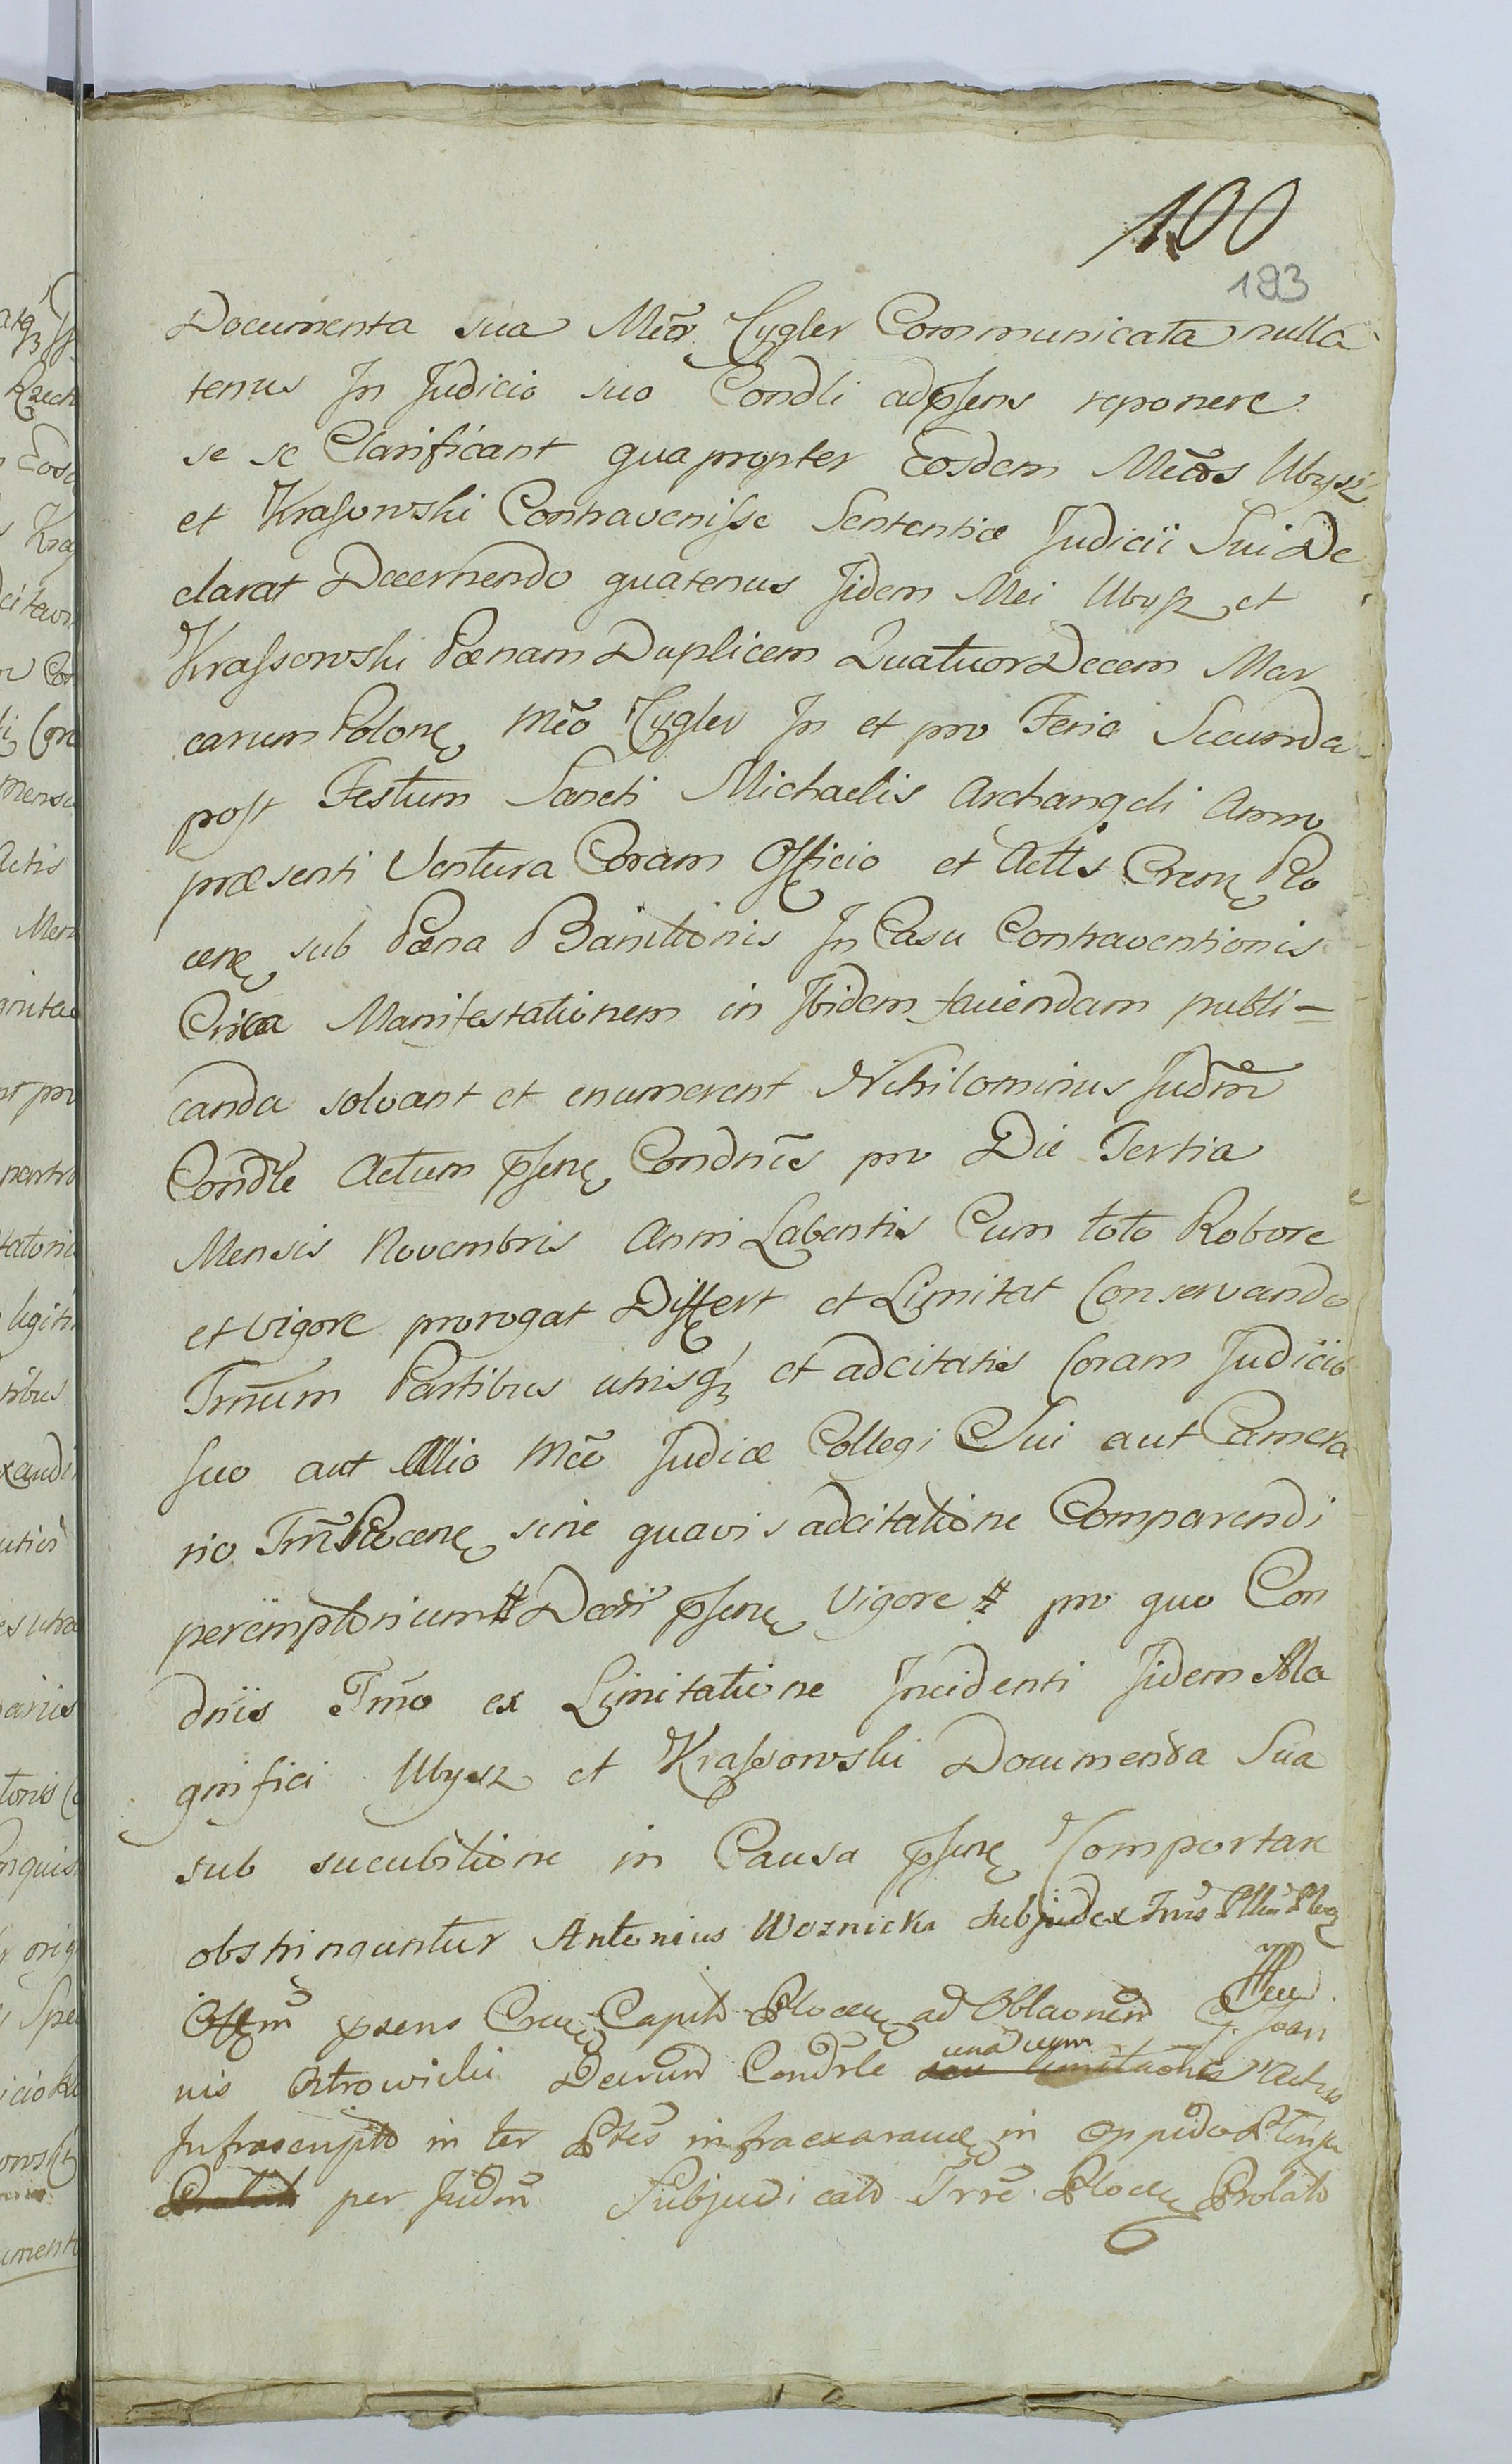 100
193
Documenta sua Mco Cygler Communicata nulla
tenus In Judicio suo Condli adpsens reponere
se se Clarificant quapropter Eosdem Mcos Ubysz
et Krasowski Contravenisse Sententiæ Judicii Sui De
clarat Decernendo quatenus Jidem Mci Ubysz et
Krassowski Pænam Duplicem Quatuor Decem Mar
carum Polone Mco Cygler In et pro Feria Secunda
post Festum Sancti Michaelis Archangeli Anno
præsenti Ventura Coram Officio et Actis Crem Plo
cen sub Pæna Banitionis In Casu Contraventionis
Circa Manifestationem in Ibidem faciendam publi-
canda solvant et enumerent Nihilominus Judm
Condle Actum psene Condnis pro Die Tertia
Mensis Novembris Anni Labentis Cum toto Robore
et Vigore prorogat Differt et Limitat Conservando
Trnum Partibus utrisq3 et adcitatis Coram Judicio
suo aut Alio Mco Judice Collegi Sui aut Camera
rio Trri Plocene sine quavis adcitatione Comparendi
perëmptorium # Decri psene Vigore # pro quo Con
dniis Trno ex Limitatione Incidenti Jidem Ma
gnifici Ubysz et Krassowski Documenta Sua
sub sucubitione in Causa psene Comportare
obstringuntur Antonius Woznicki Subjudex
Offm psens Crem Capit Plocen ad Oblaonem G. Joan
nis Ostrowicki Decrum Condrle una cum limitaonis Actus
Infrascripto in ter Ptes infraexaran in oppido
per Judm Subjudicale Trre Plocen Prolato